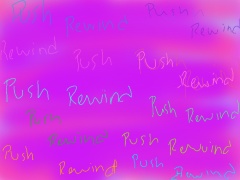 Push Rewind Push Rewind
Rewind Push Push Rewind
Push Rewind Push Rewind
Push Rewind Push Rewind
Push Rewind Push Rewind